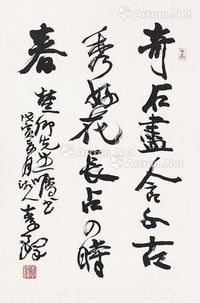 奇石盡含千古
秀好花長占四時
春
楚卿先生屬書
戊寅夏月沙人李鐸